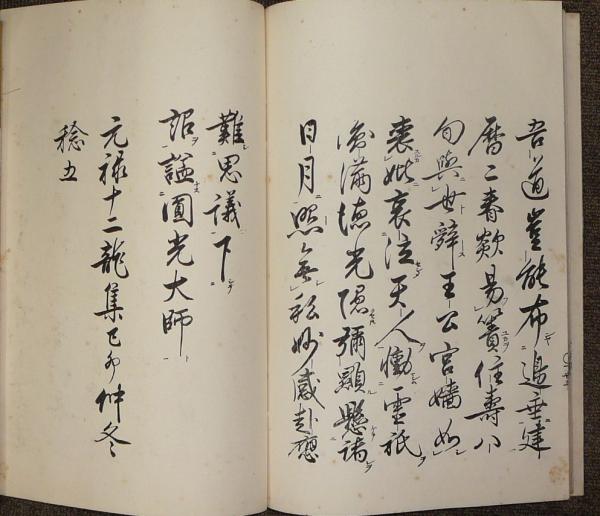 吾道豈能布邊垂建
暦二春歘易簀住壽八
旬與世辭王公宮嬙如
喪妣哀泣天人慟靈祇
滿徳光隠彌顯懸諸
日月照無私妙感赴應
難思議下
詔諡圓光大師
元禄十二龍集己卯仲冬
稔五